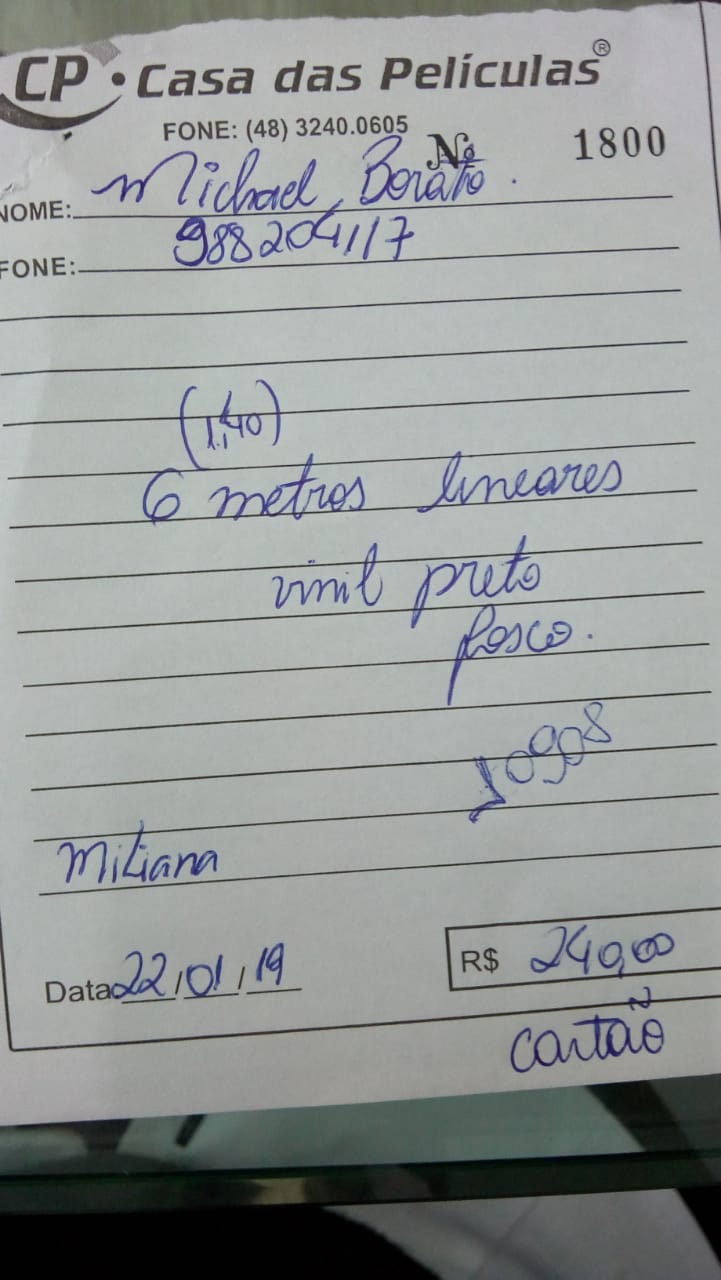 CP • Casa das Películas®
FONE: (48) 3240.0605
Nº 1800
NOME: Michael Borato.
FONE: 988204117
(1,40)
6 metros lineares
vinil preto
fosco.
Miliana
Data 22/01/19
R$ 240,00
cartão